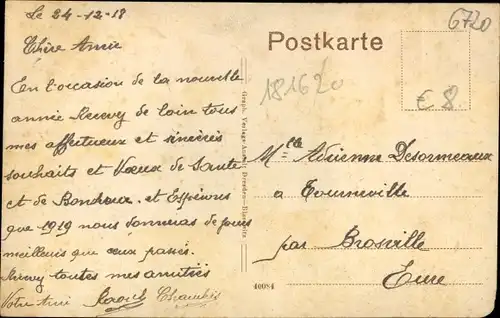 Le 24-12-18
Chère Amie
En l'occasion de la nouvelle
année Recevez de loin tous
mes affectueux et sincères
souhaits et Vœux de Santé
et de Bonheur. et Espérons
que 1919 nous donneras de jours
meilleurs que ceux passés.
Recevez toutes mes amitiés
Votre Ami Raoul
6720
Postkarte
181620
€ 8
Mlle Adrienne Desormeaux
a Tourneville
par Brosville
Eure
40084